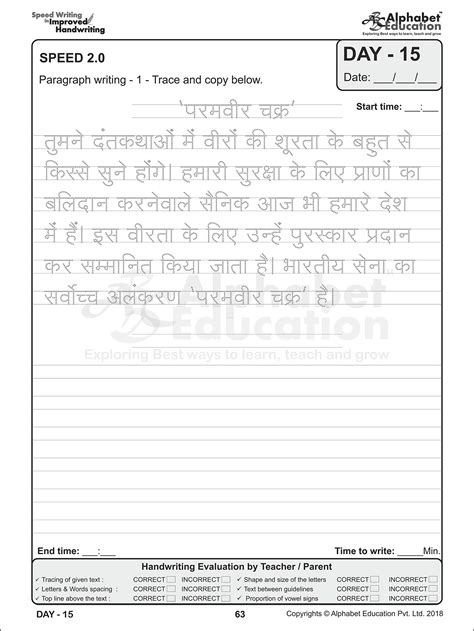 Speed Writing
for Improved
Handwriting
Alphabet
Education
Exploring Best ways to learn, teach and grow
SPEED 2.0
DAY - 15
Paragraph writing - 1 - Trace and copy below.
Date: ___/___/___
'परमवीर चक्र'
Start time: ___:___
तुमने दंतकथाओं में वीरों की शूरता के बहुत से
किस्से सुने होंगे। हमारी सुरक्षा के लिए प्राणों का
बलिदान करनेवाले सैनिक आज भी हमारे देश
में हैं। इस वीरता के लिए उन्हें पुरस्कार प्रदान
कर सम्मानित किया जाता है। भारतीय सेना का
सर्वोच्च अलंकरण 'परमवीर चक्र' है।
Alphabet
Education
Exploring Best ways to learn, teach and grow
End time: ___:___
Time to write: _____Min.
Handwriting Evaluation by Teacher / Parent
✓ Tracing of given text : CORRECT INCORRECT ✓ Shape and size of the letters CORRECT INCORRECT
✓ Letters & Words spacing : CORRECT INCORRECT ✓ Text between guidelines CORRECT INCORRECT
✓ Top line above the text : CORRECT INCORRECT ✓ Proportion of vowel signs CORRECT INCORRECT
DAY - 15
63
Copyrights © Alphabet Education Pvt. Ltd. 2018